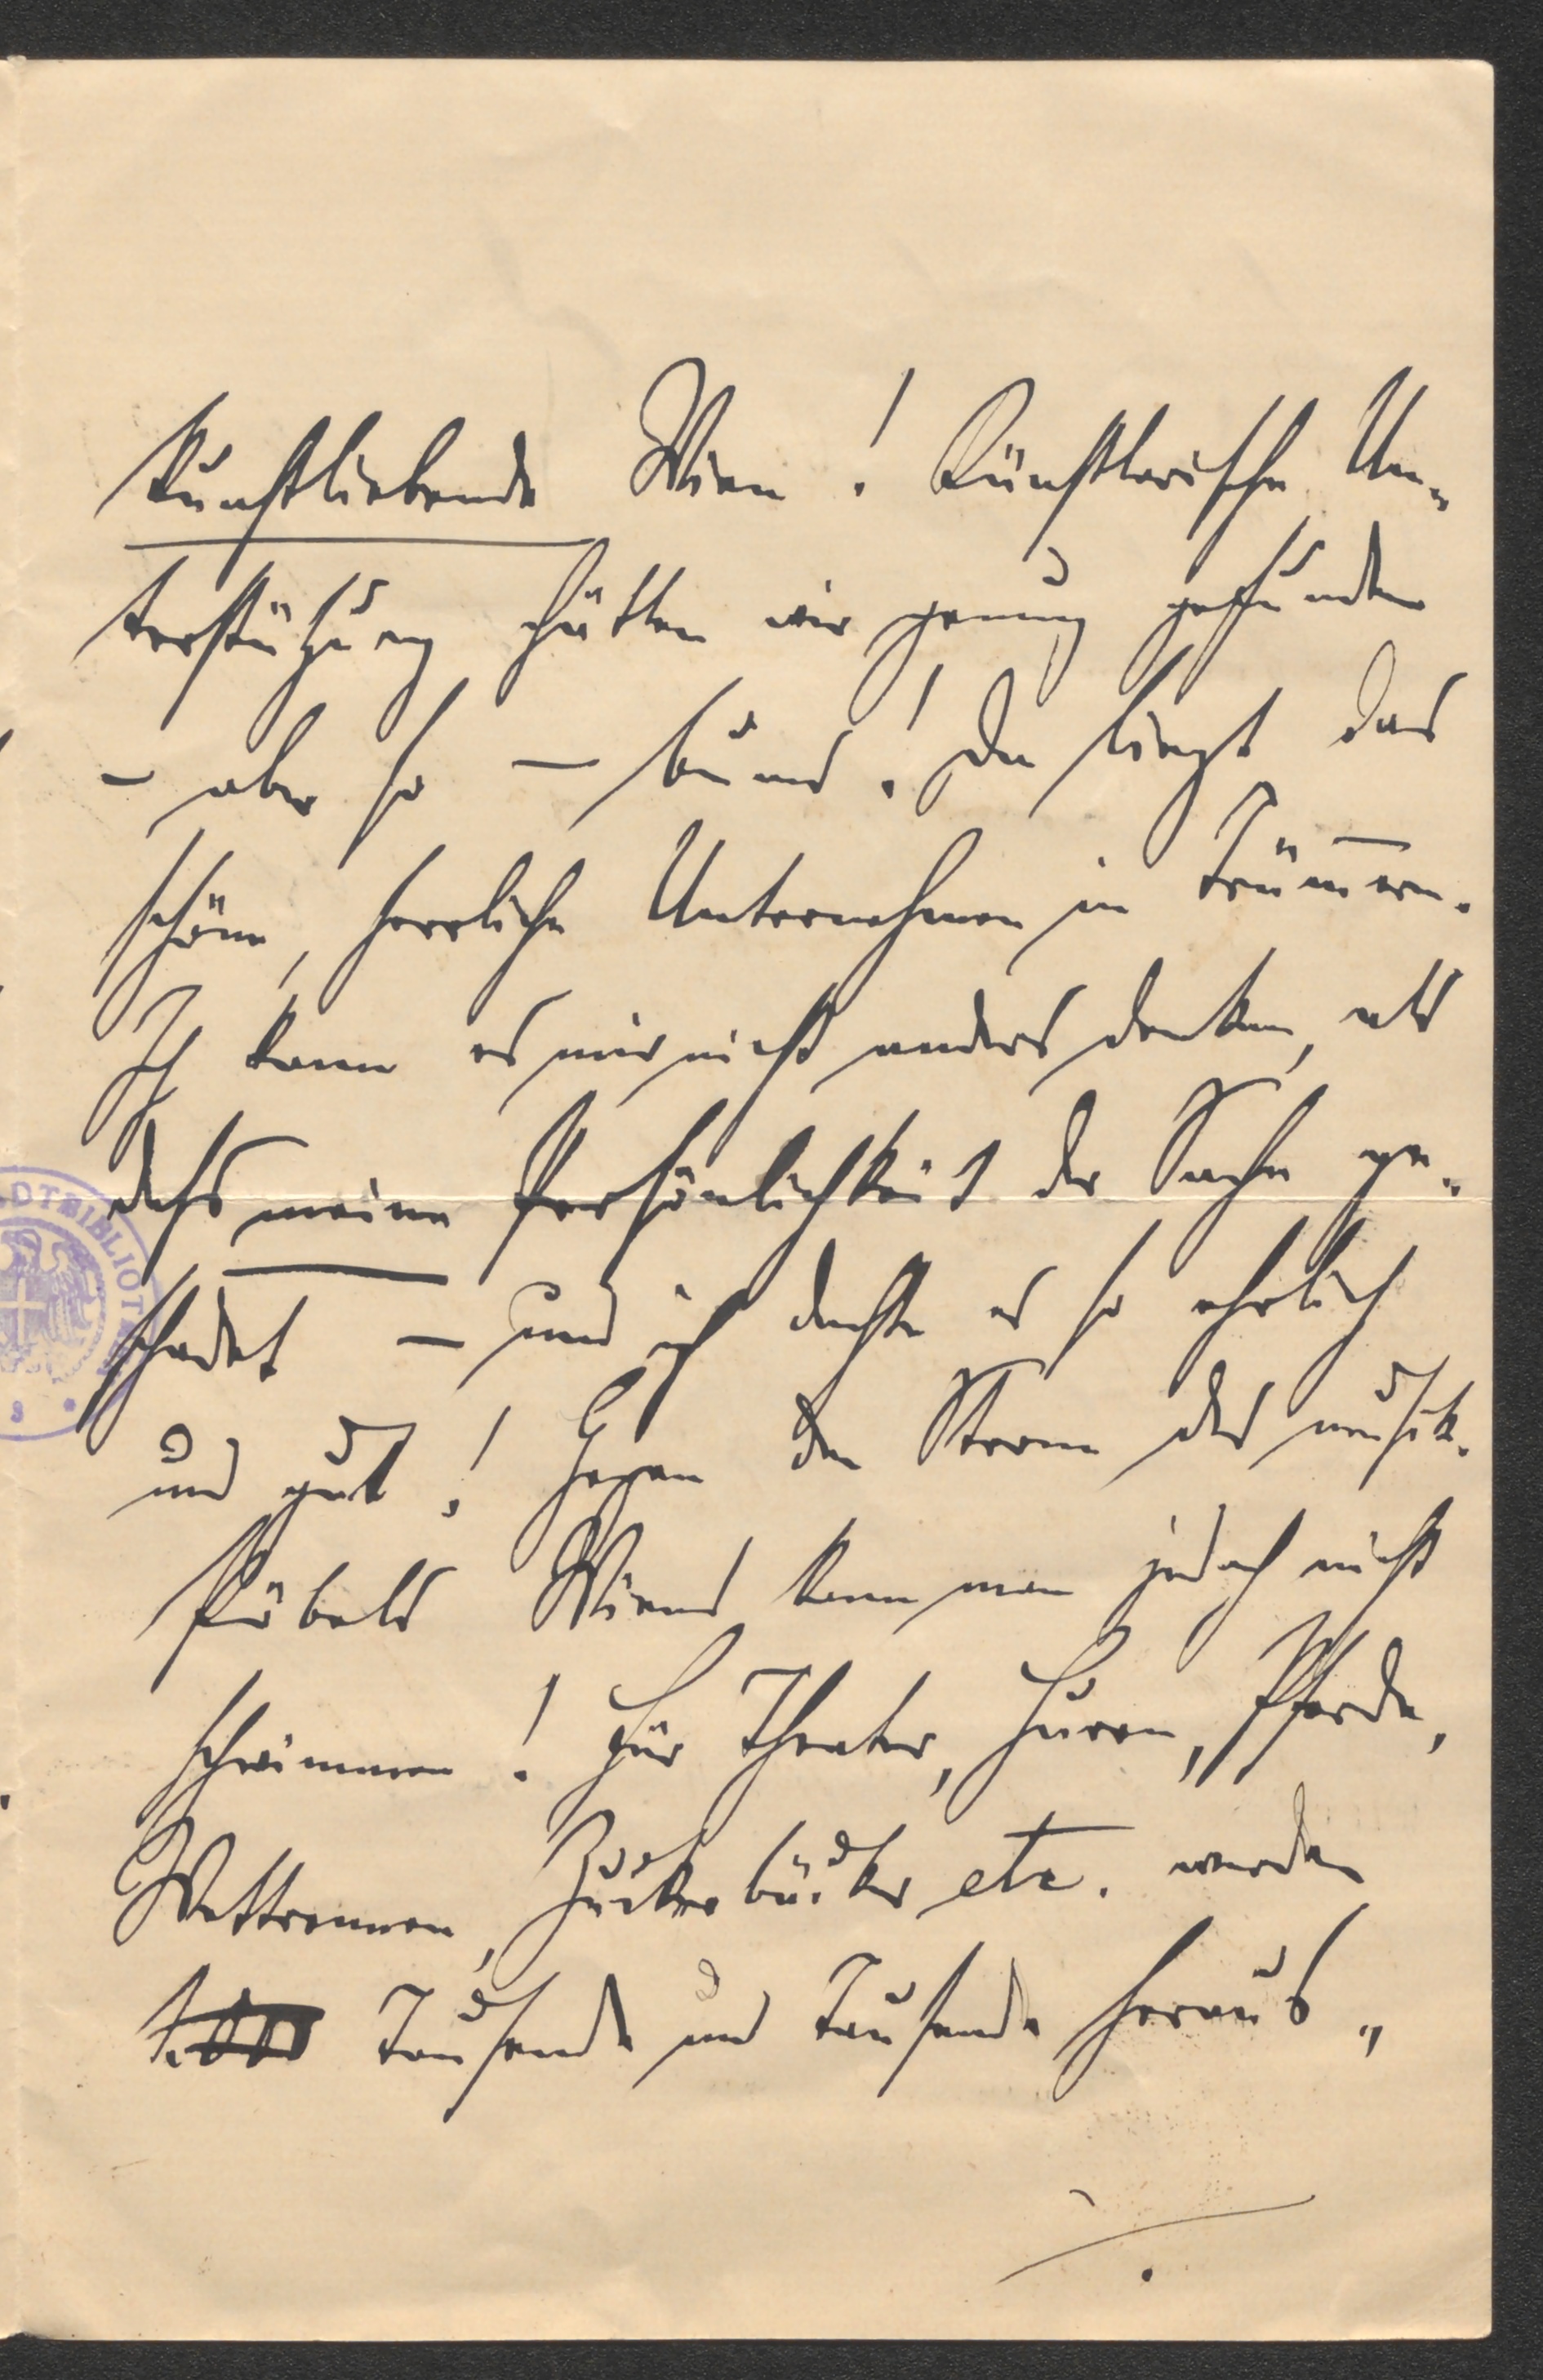 kunstliebende Wien! Künstlerische Un-
terstützung hätten wir genug gefunden
– aber so – bums! Da liegt das
schöne, herrliche Unternehmen in Trümmern.
Ich kann es mir nicht anders denken, als
dass meine Persönlichkeit der Sache ge-
schadet – und ich dachte es so ehrlich
und gut! Gegen den Strom des musik.
Pöbels Wiens kann man jedoch nicht
schwimmen! Für Theater, Huren, Pferde,
Wettrennen, Zuckerbäcker etc. werden
Tausende und Tausende heraus-